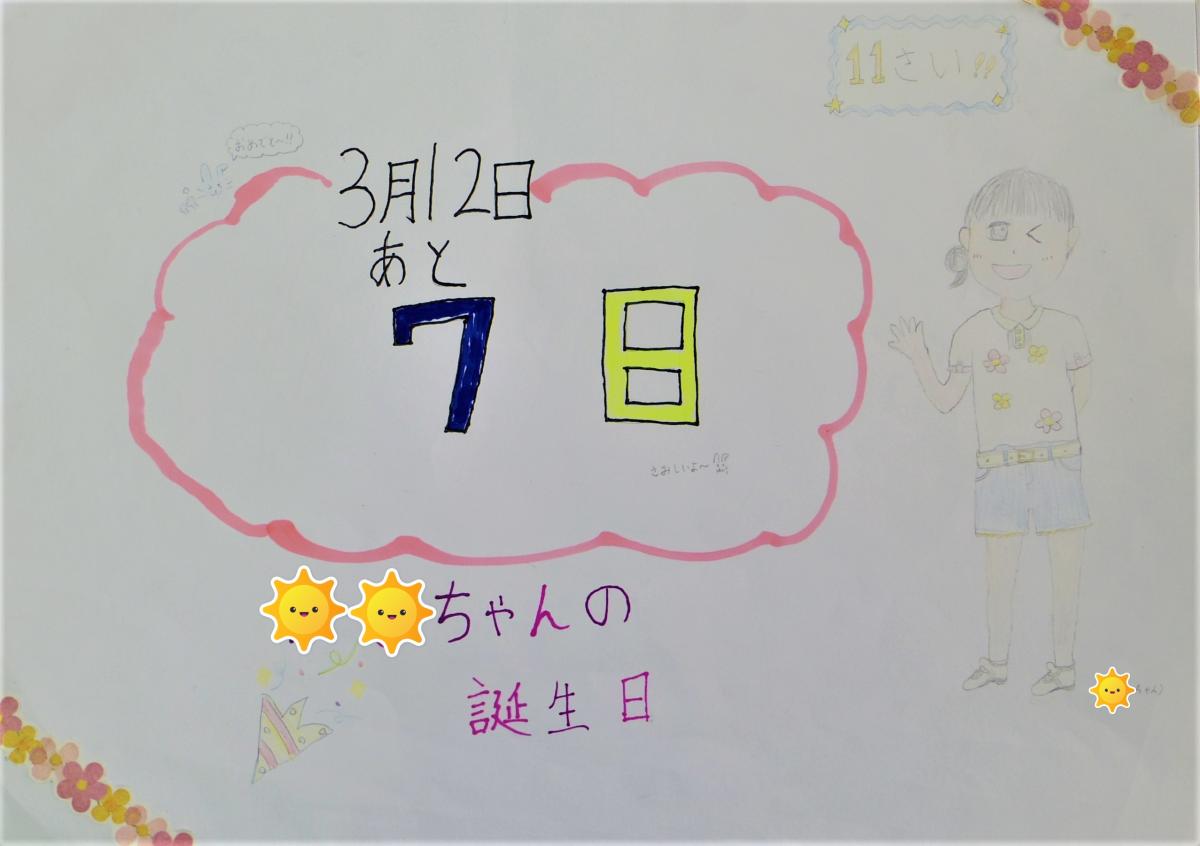 11さい!!
おめでと〜!!
3月12日
あと
7日
さみしいよ〜
ちゃんの
誕生日
ちゃん)